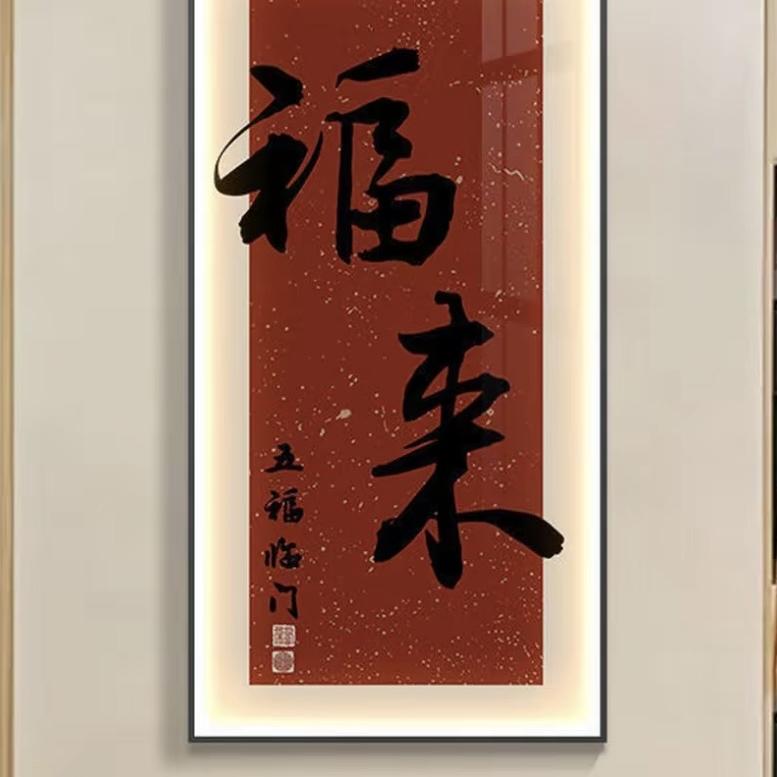 福
来
五福临门